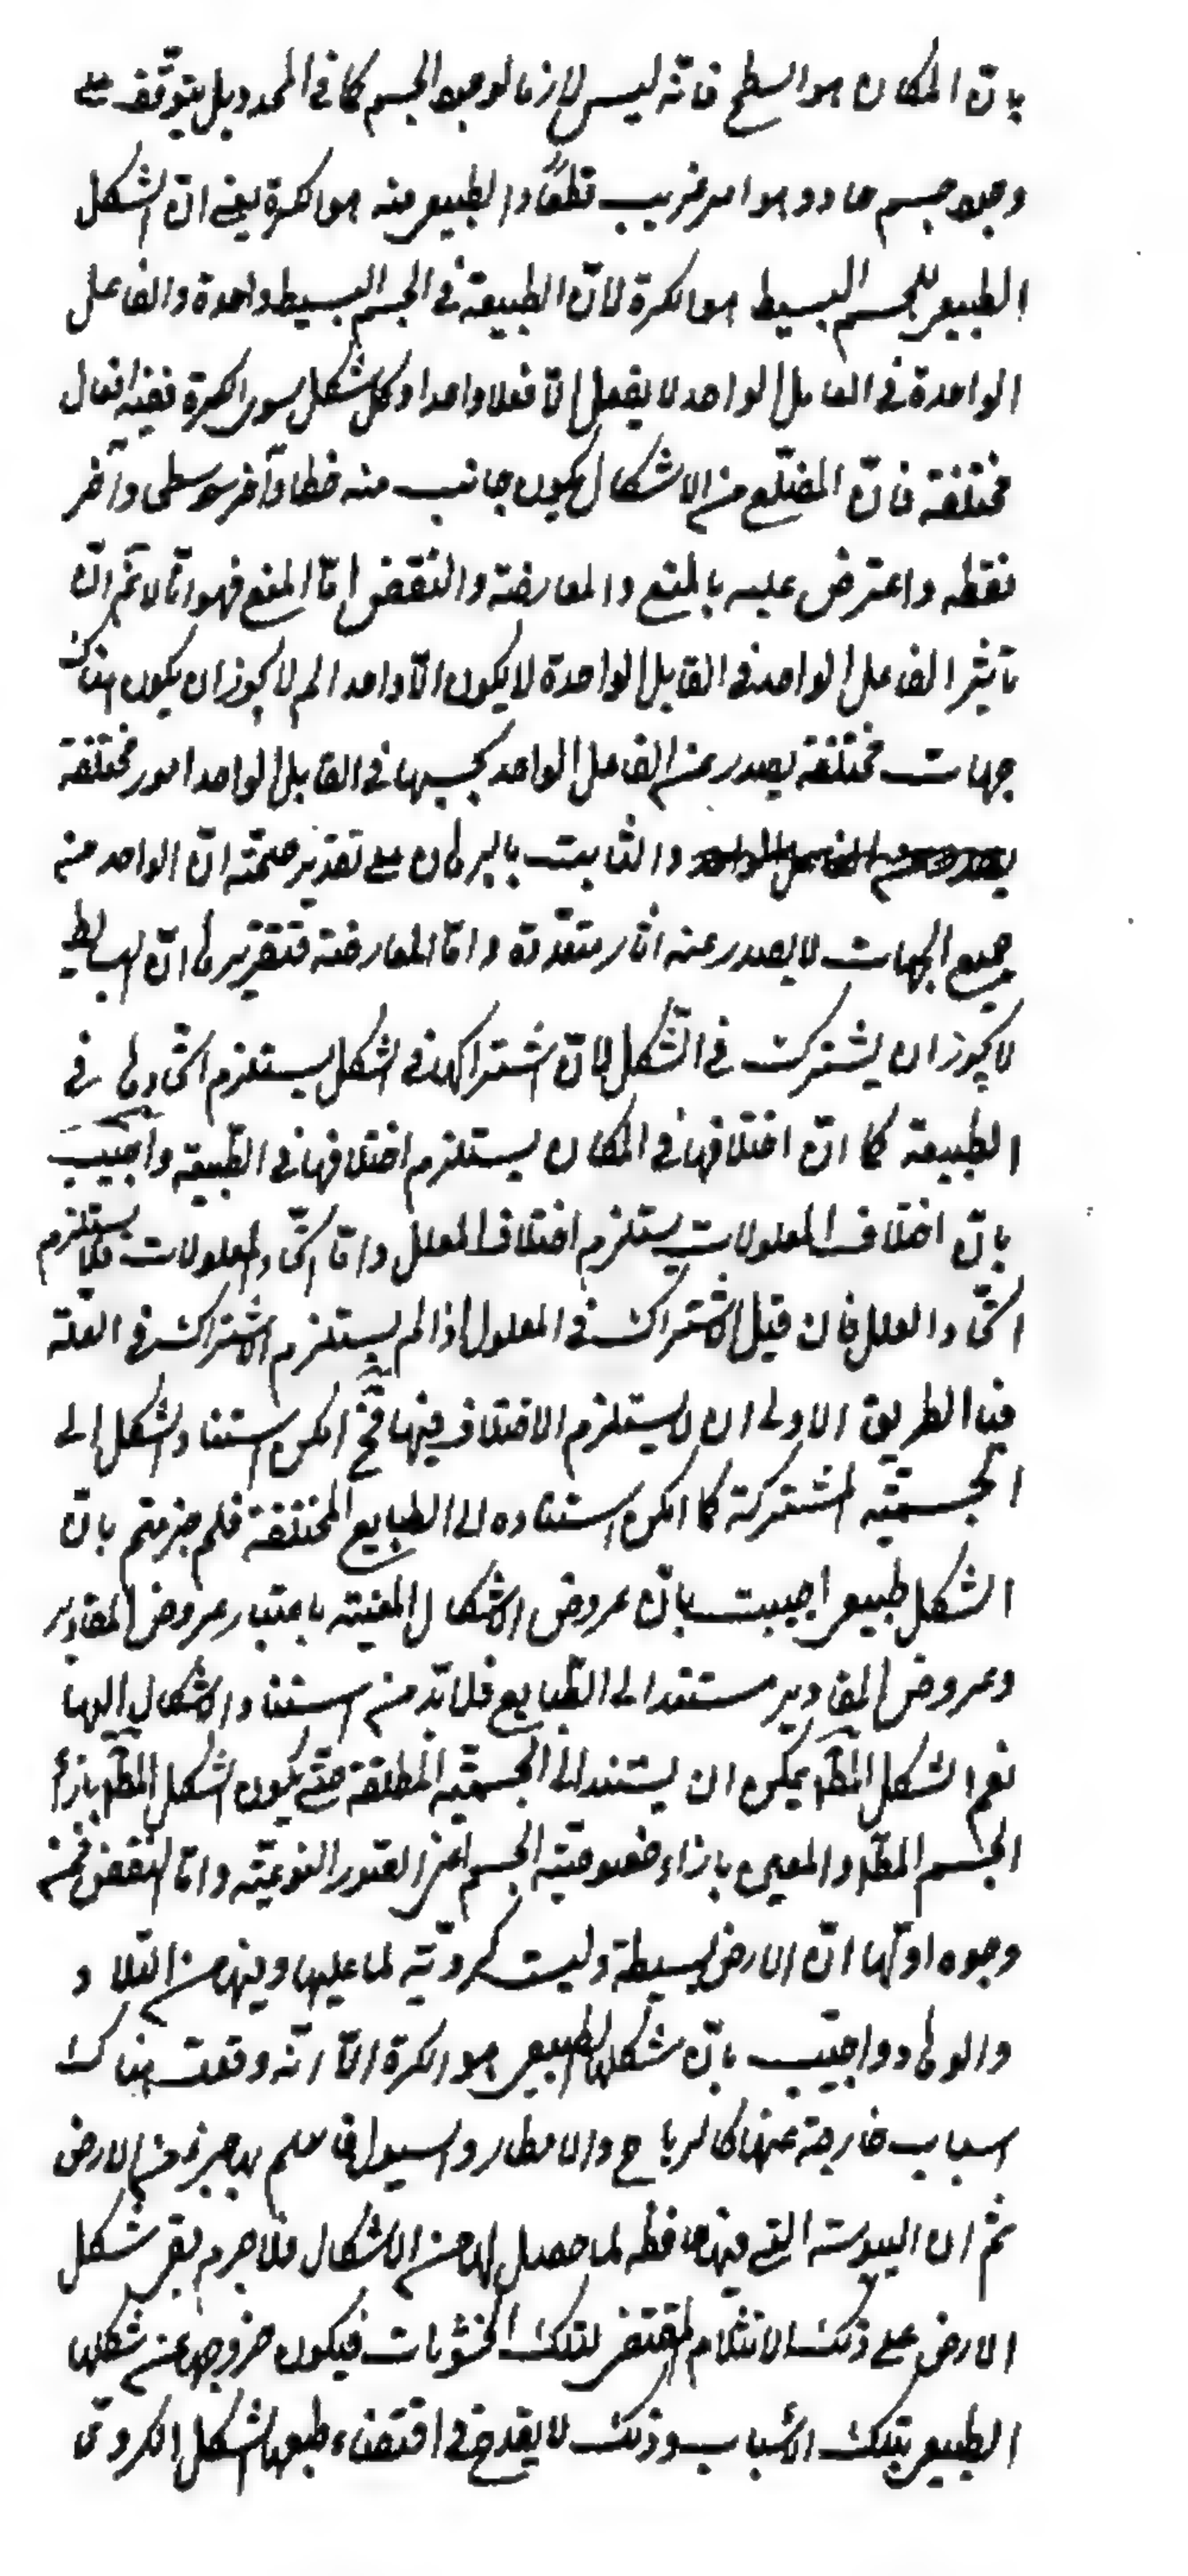 بانّ المكان هو السطح فانّه ليس لازما لوجود الجسم كما في المحدد بل يتوقّف على
وجود جسم حاو و هو امر غريب قطعًا و الطبيعي منه هو الكرة يعنى انّ الشكل
الطبيعي للجسم البسيط هو الكرة لانّ الطبيعة في الجسم البسيط واحدة و الفاعل
الواحدة في القابل الواحد لا يفعل الّا فعلا واحدا و كل شكل سوى الكرة ففيه افعال
مختلفة فانّ المضلّع من الاشكال يكون جانب منه خطا و آخر سطحا و آخر
نقطه و اعترض عليه بالمنع و المعارضة و النقض امّا المنع فهو انّا لا نم انّ
تاثير الفاعل الواحد في القابل الواحدة لا يكون الّا واحدا لم لا يجوز ان يكون هناك
جهات مختلفة يصدر عن الفاعل الواحد بحسبها في القابل الواحد امور مختلفة
و الثابت بالبرهان على تقدير صحّته انّ الواحد منه
جميع الجهات لا يصدر عنه اثار متعدّدة و امّا المعارضة فتقريرها انّ البسائط
لا يجوز ان يشترك في الشّكل لانّ اشتراكها في الشكل يستلزم اتّحادها في
الطبيعة كما انّ اختلافها في المكان يستلزم اختلافها في الطّبيعة و اجيب
بانّ اختلاف المعلولات يستلزم اختلاف العلل و امّا اتّحاد المعلولات فلا يستلزم
اتّحاد العلل فان قيل الاشتراك في المعلول اذا لم يستلزم الاشتراك في العلّة
فبالطريق الاولى ان لا يستلزم الاختلاف فيها فح امكن استناد الشكل الى
الجسميّة المشتركة كما امكن استناده الى الطبايع المختلفة فلم جزمتم بانّ
الشكل طبيعي اجيبت بانّ عروض الاشكال المعيّنة باعتبار عروض المقادير
و عروض المقادير مستند الى الطّبايع فلا بدّ من استناد الاشكال اليها
نعم الشكل المط يمكن ان يستند الى الجسميّة المطلقة حتّى يكون الشكل المط بازاء
الجسم المط و المعين بازاء خصوصيّة الجسم اعنى الصّور النوعيّة و امّا النقض فمن
وجوه اولها انّ الارض بسيطة و ليست كرويّة لما عليها و فيها من التلال
و الوهاد و اجيب بانّ شكلها الطبيعي هو الكرة الّا انّه وقعت هناك
اسباب خارجة عنها كالرياح و الامطار و السيول من الارض
ثم ان اليبوسة التي فيها حافظة لما حصل لها من الاشكال فلا جرم بقي شكل
الارض على ذلك الانثلام المقتضى لتلك الخشونات فيكون خروجها عن شكلها
الطبيعي بتلك الاسباب و ذلك لا يقدح في اقتضاء طبعها الشكل الكروىّ